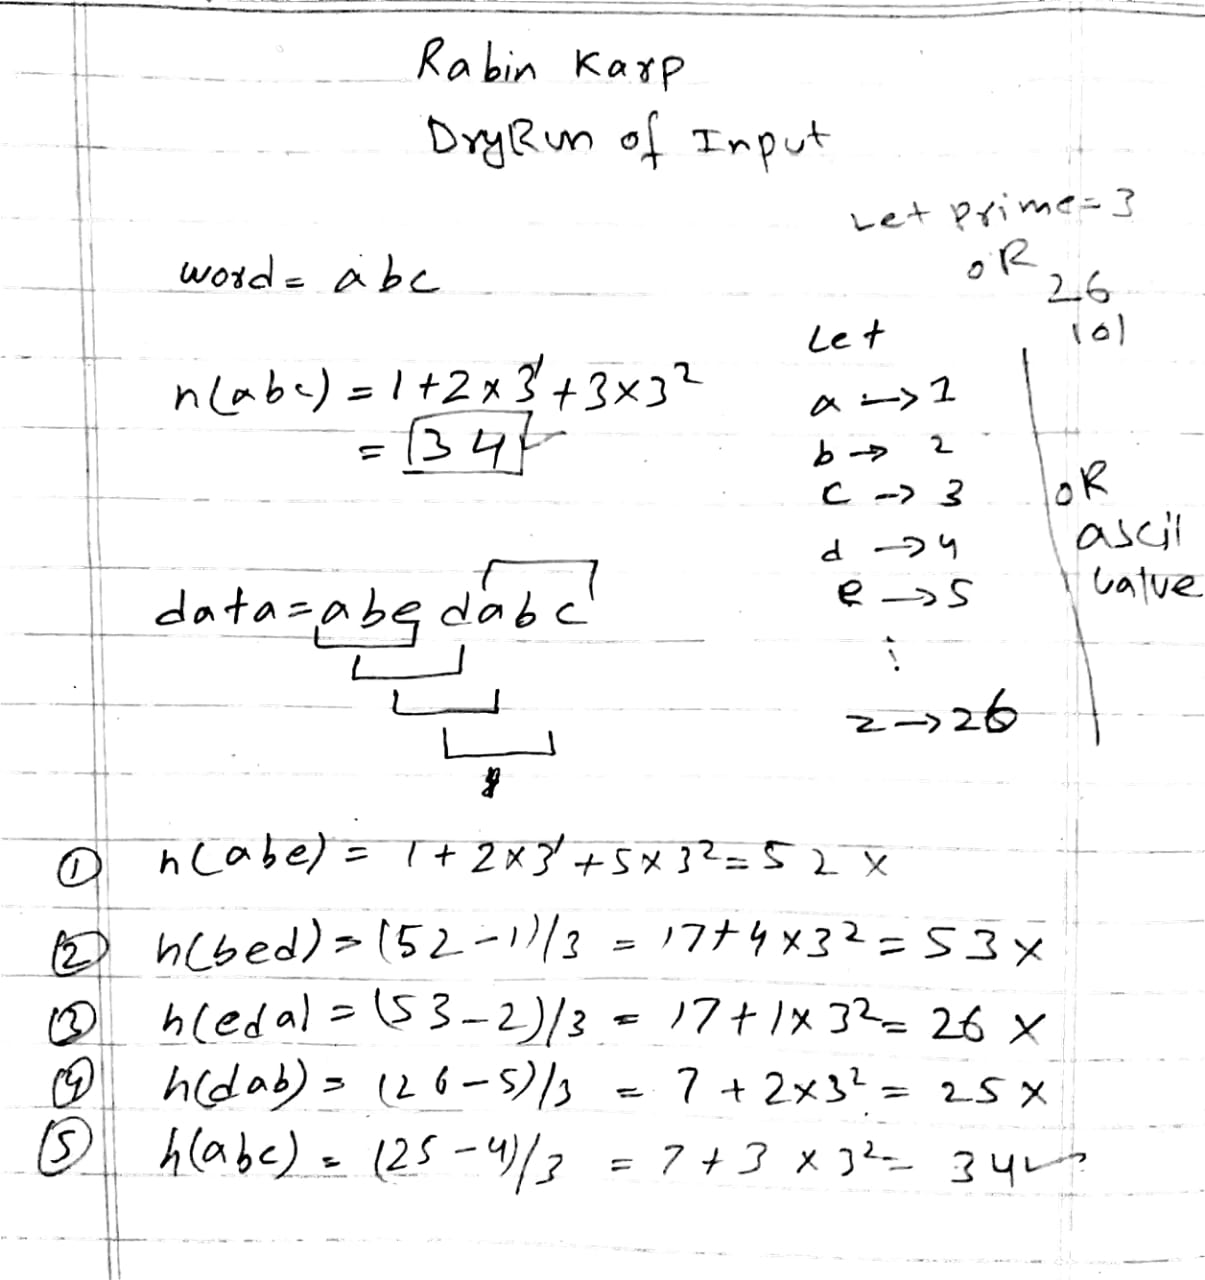 Rabin Karp
DryRun of Input
Let prime = 3
OR
26
101
word = abc
Let
h(abc) = 1+2×3¹+3×3²
= 34 ✓
a → 1
b → 2
c → 3
d → 4
e → 5
⋮
z → 26
OR
ascil
value
data = abe dabc
① h(abe) = 1+2×3¹+5×3²=52 ×
② h(bed) = (52-1)/3 = 17+4×3²=53 ×
③ h(eda) = (53-2)/3 = 17+1×3²= 26 ×
④ h(dab) = (26-5)/3 = 7+2×3² = 25 ×
⑤ h(abc) = (25-4)/3 = 7+3×3²= 34 ✓